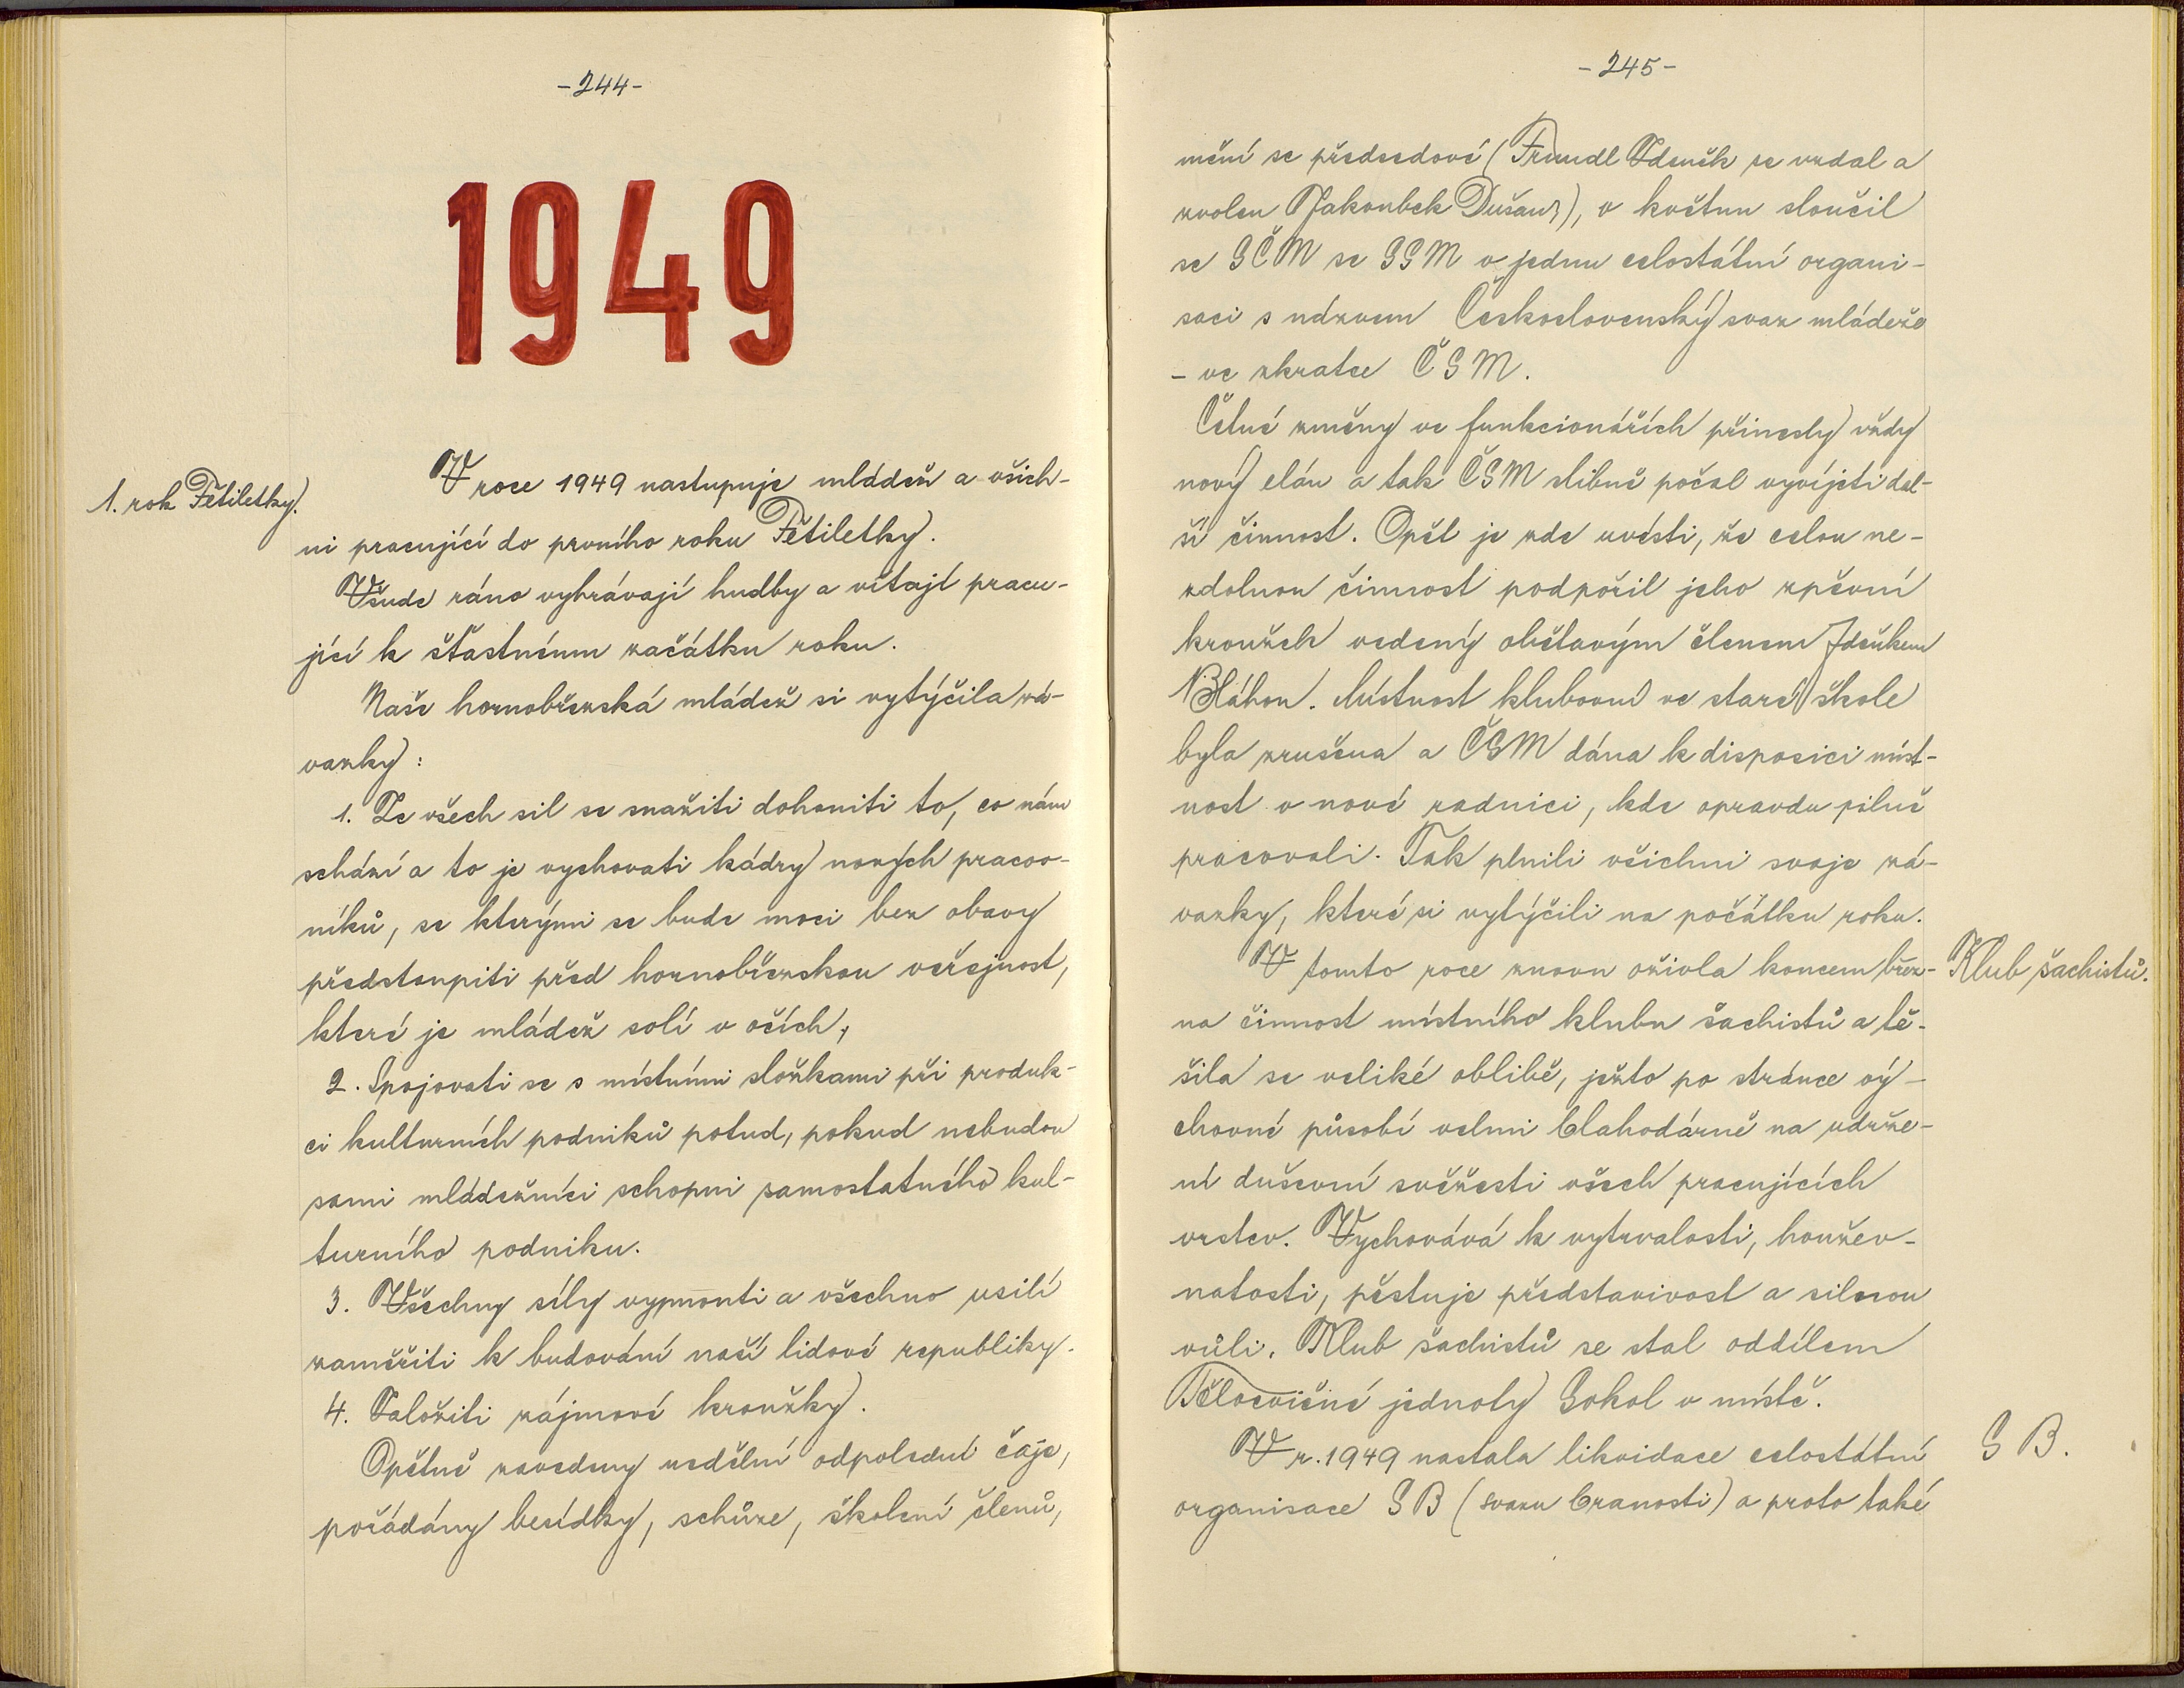 -244-
1949
1. rok Pětiletky.
V roce 1949 nastupuje mládež a všich-
ni pracující do prvního roku Pětiletky.
Všude ráno vyhrávají hudby a vítají pracu-
jící k šťastnému začátku roku.
Naše hornobřezská mládež si vytýčila zá-
vazky:
1. Ze všech sil se snažiti dohoniti to, co nám
schází a to je vychovati kádry nových pracov-
níků, se kterými se bude moci bez obavy
předstoupiti před hornobřezskou veřejnost,
které je mládež solí v očích,
2. Spojovati se s místními složkami při produk-
ci kulturních podniků potud, pokud nebudou
sami mládežníci schopni samostatného kul-
turního podniku.
3. Všechny síly vypnouti a všechno usilí
zaměřiti k budování naší lidové republiky.
4. Založiti zájmové kroužky.
Opětně zavedeny nedělní odpolední čaje,
pořádány besídky, schůze, školení členů,
-245-
mění se předsedové (Fraundl Zdeněk se vzdal a
zvolen Jakoubek Dušan), v květnu sloučil
se SČM se SSM v jednu celostátní organi-
saci s názvem Československý svaz mládeže
- ve zkratce ČSM.
Četné změny ve funkcionářích přinesly vždy
nový elán a tak ČSM slibně počal vyvíjeti dal-
ší činnost. Opět je zde uvésti, že celou ne-
zdolnou činnost podpořil jeho zpěvní
kroužek vedený obětavým členem Zdeňkem
Bláhou. Místnost klubovní ve staré škole
byla zrušena a ČSM dána k disposici míst-
nost v nové radnici, kde opravdu pilně
pracovali. Tak plnili všichni svoje zá-
vazky, které si vytýčili na počátku roku.
V tomto roce znovu oživla koncem břez-
Klub šachistů.
na činnost místního klubu šachistů a tě-
šila se veliké oblibě, ježto po stránce vý-
chovné působí velmi blahodárně na udrže-
ní duševní svěžesti všech pracujících
vrstev. Vychovává k vytrvalosti, houžev-
natosti, pěstuje představivost a silnou
vůli. Klub šachistů se stal oddílem
Tělocvičné jednoty Sokol v místě.
V r. 1949 nastala likvidace celostátní
S B.
organisace SB (svazu brannosti) a proto také